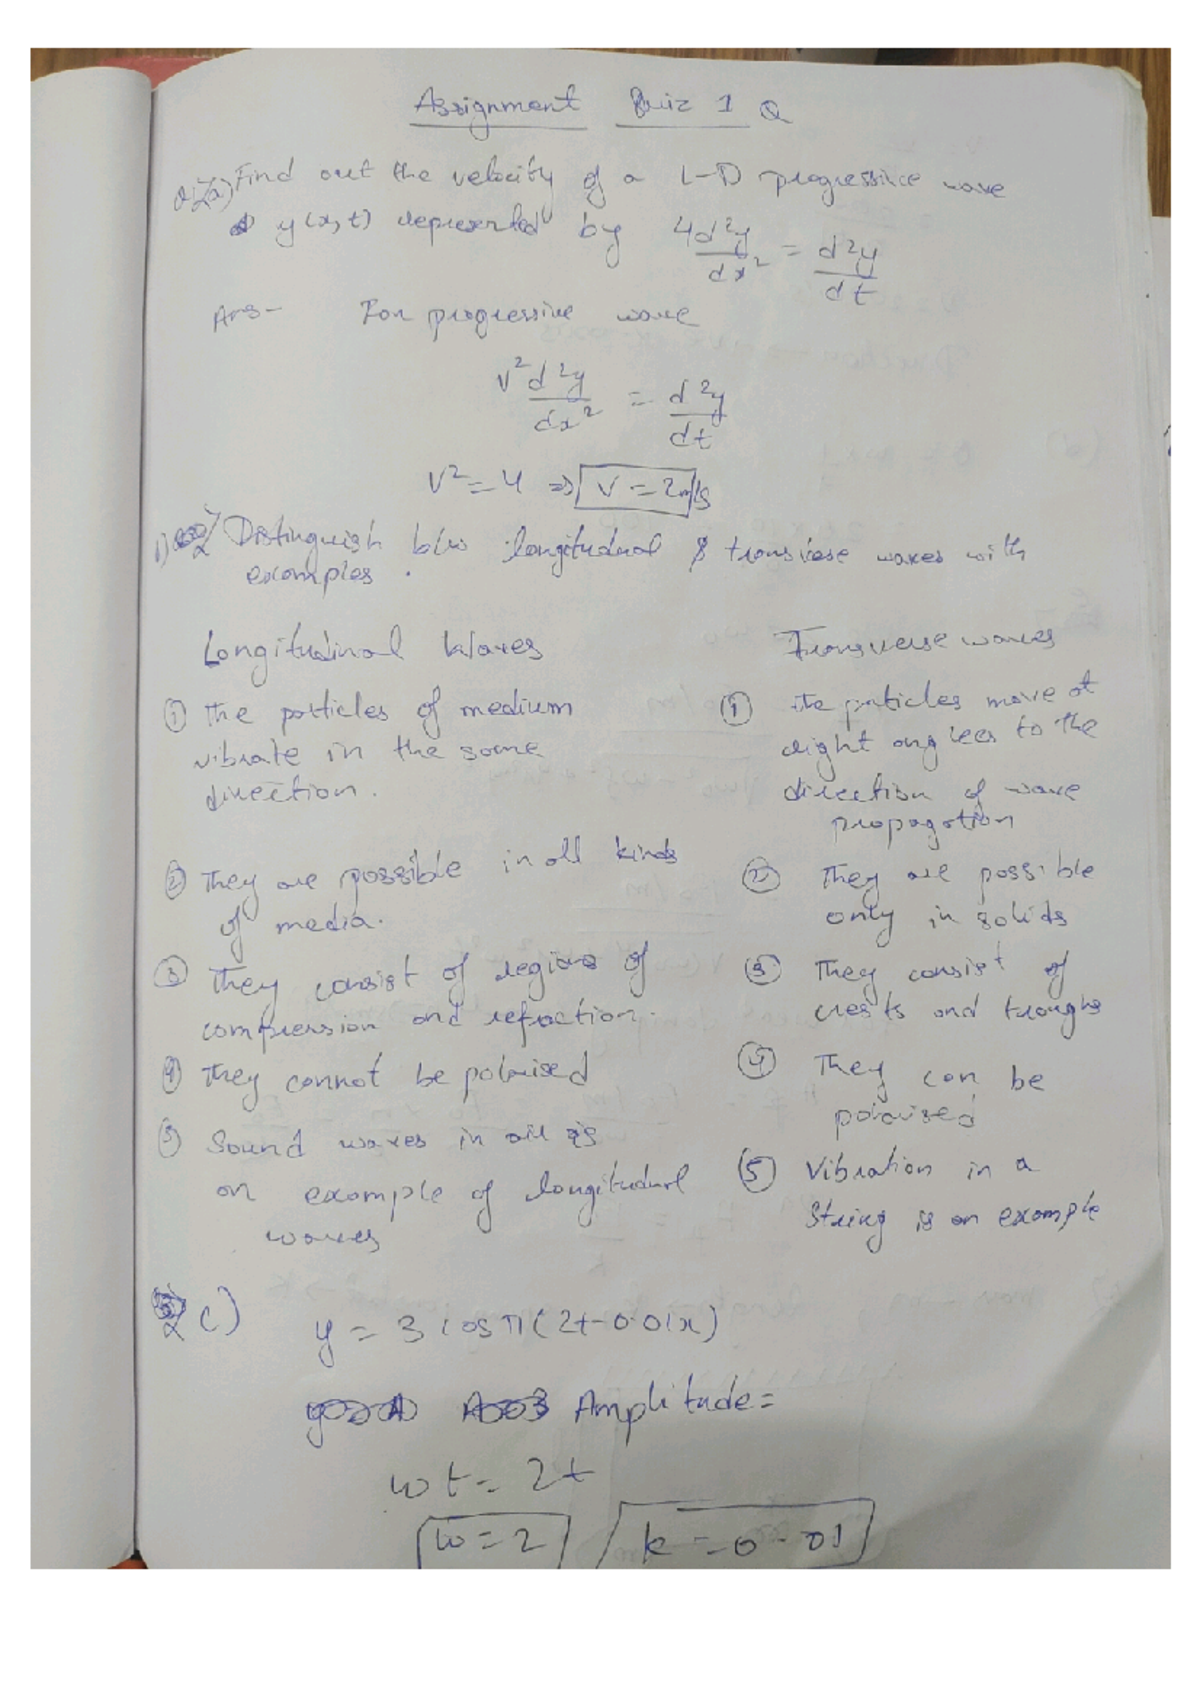 Assignment Quiz 1 Q
Q.2(a) Find out the velocity of a 1-D progressive wave
y(x,t) represented by 4d²y/dx² = d²y/dt
Ans- For progressive wave
v²d²y/dx² = d²y/dt
v² = 4 ⇒ v = 2m/s
1) Distinguish b/w longitudinal & transverse waves with
examples.
Longitudinal Waves
① The particles of medium
vibrate in the same
direction.
② They are possible in all kinds
of media.
③ They consist of regions of
compression and refraction.
④ They cannot be polarised
⑤ Sound waves in air is
an example of longitudinal
waves
Transverse waves
① particles move at
right anglees to the
direction of wave
propagation
② They are possible
only in solids
③ They consist of
crests and troughs
④ They can be
polarised
⑤ Vibration in a
string is an example
2 c)
y = 3 cos π(2t-0.01x)
Amplitude=
wt = 2t
w = 2 / k = 0.01